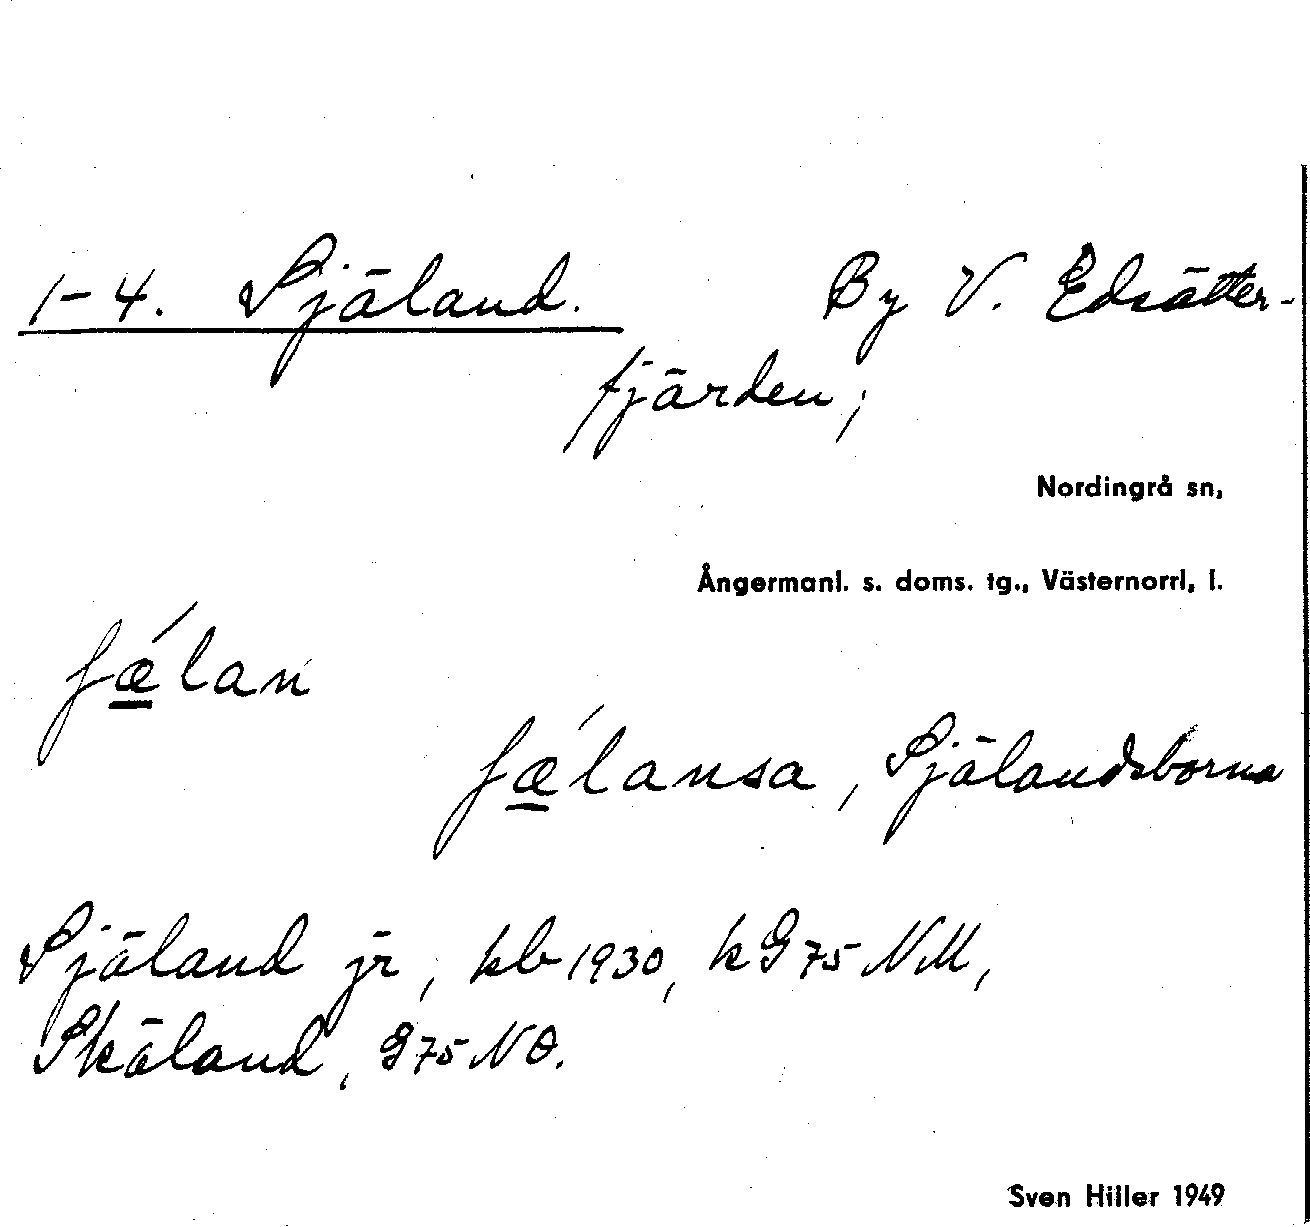 1-4. Själand. By V. Edsätter-
fjärden;
Nordingrå sn,
Ångermanl. s. doms. tg., Västernorrl, l.
ʃǽ̠lan
ʃǽ̠lansa, Själandsborna
Själand jr, kb 1930, k G75 NM,
Skäland, G75 NO.
Sven Hiller 1949